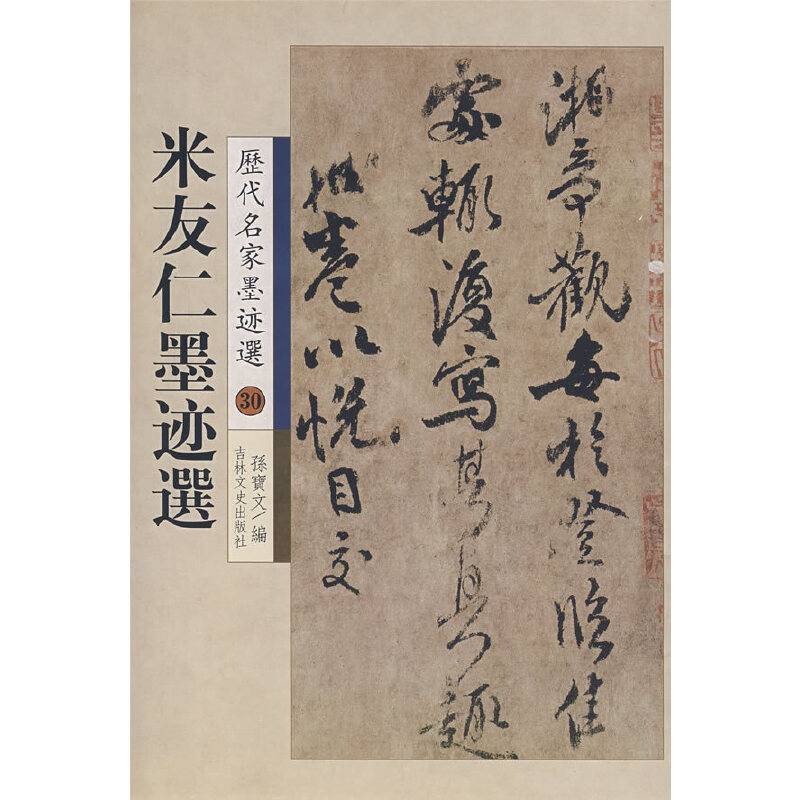 米友仁墨迹選
歷代名家墨迹選
30
孫寶文/編
吉林文史出版社
湘奇觀每於登臨佳
處輒復寫其真趣
卷以悅目交